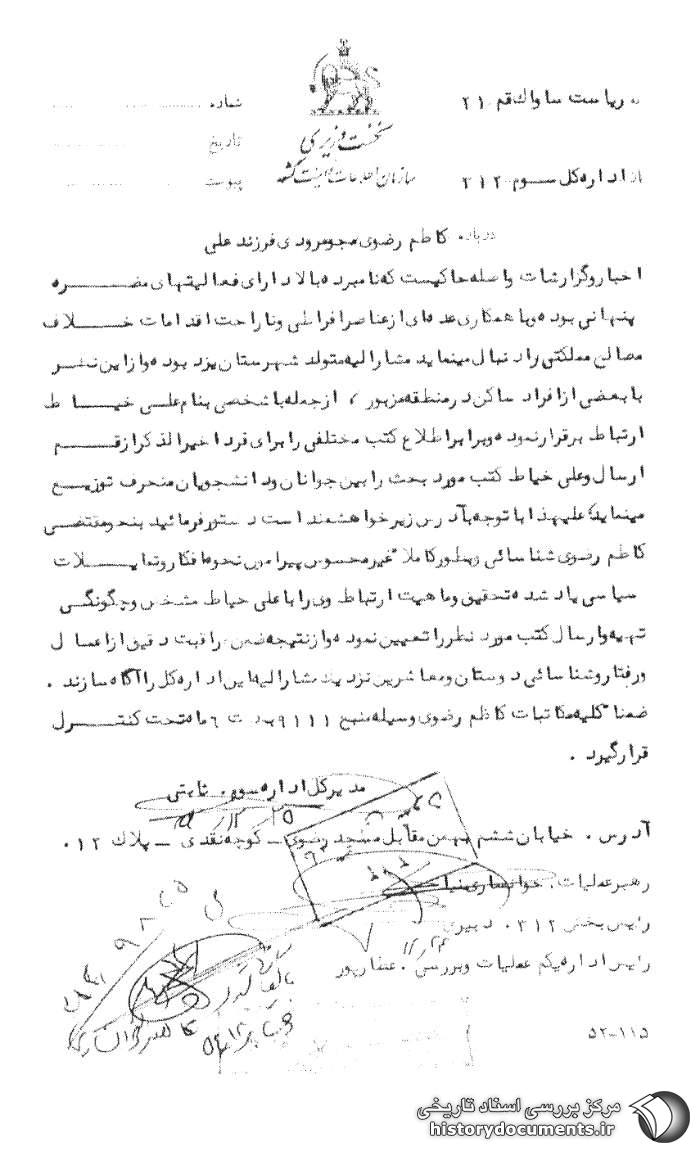 به ریاست ساواک قم ۲۱
شماره
نخست وزیری
تاریخ
سازمان اطلاعات و امنیت کشور
از اداره کل سوم ۳۱۲
پیوست
درباره کاظم رضوی فرزند علی
اخبار و گزارشات واصله حاکیست که نامبرده بالا دارای فعالیتهای مضره
پنهانی بوده و با همکاری عده ای از عناصر افراطی و ناراحت اقدامات خلاف
مصالح مملکتی را دنبال مینماید مشارالیه متولد شهرستان یزد بوده و از این نظر
با بعضی از افراد ساکن در منطقه مزبور، از جمله با شخصی بنام علی خیاط
ارتباط برقرار نموده و برابر اطلاع کتب مختلفی را برای فرد اخیرالذکر از قم
ارسال و علی خیاط کتب مورد بحث را بین جوانان و دانشجویان منحرف توزیع
مینماید علیهذا با توجه بآدرس زیر خواهشمند است دستور فرمائید بنحو مقتضی
کاظم رضوی شناسائی و بطور کاملا غیر محسوس پیرامون نحوه افکار و تمایلات
سیاسی یاد شده تحقیق و ماهیت ارتباط وی را با علی خیاط مشخص و چگونگی
تهیه و ارسال کتب مورد نظر را تعیین نموده و از نتیجه ضمن مراقبت دقیق از اعمال
و رفتار و شناسائی دوستان و معاشرین نزدیک مشارالیه این اداره کل را آگاه سازند .
ضمنا کلیه مکاتبات کاظم رضوی وسیله منبع ۹۱۱۱ بمدت ۶ ماه تحت کنترل
قرار گیرد .
مدیر کل اداره سوم . ثابتی
آدرس . خیابان ششم بهمن مقابل مسجد رضوی ــ کوچه نقدی ــ پلاک ۰۱۲
رهبر عملیات . خوانساری نیا
رئیس بخش ۳۱۲ . دبیری
رئیس اداره یکم عملیات و بررسی . عطارپور
۵۲-۱۱۵
مرکز بررسی اسناد تاریخی
historydocuments.ir